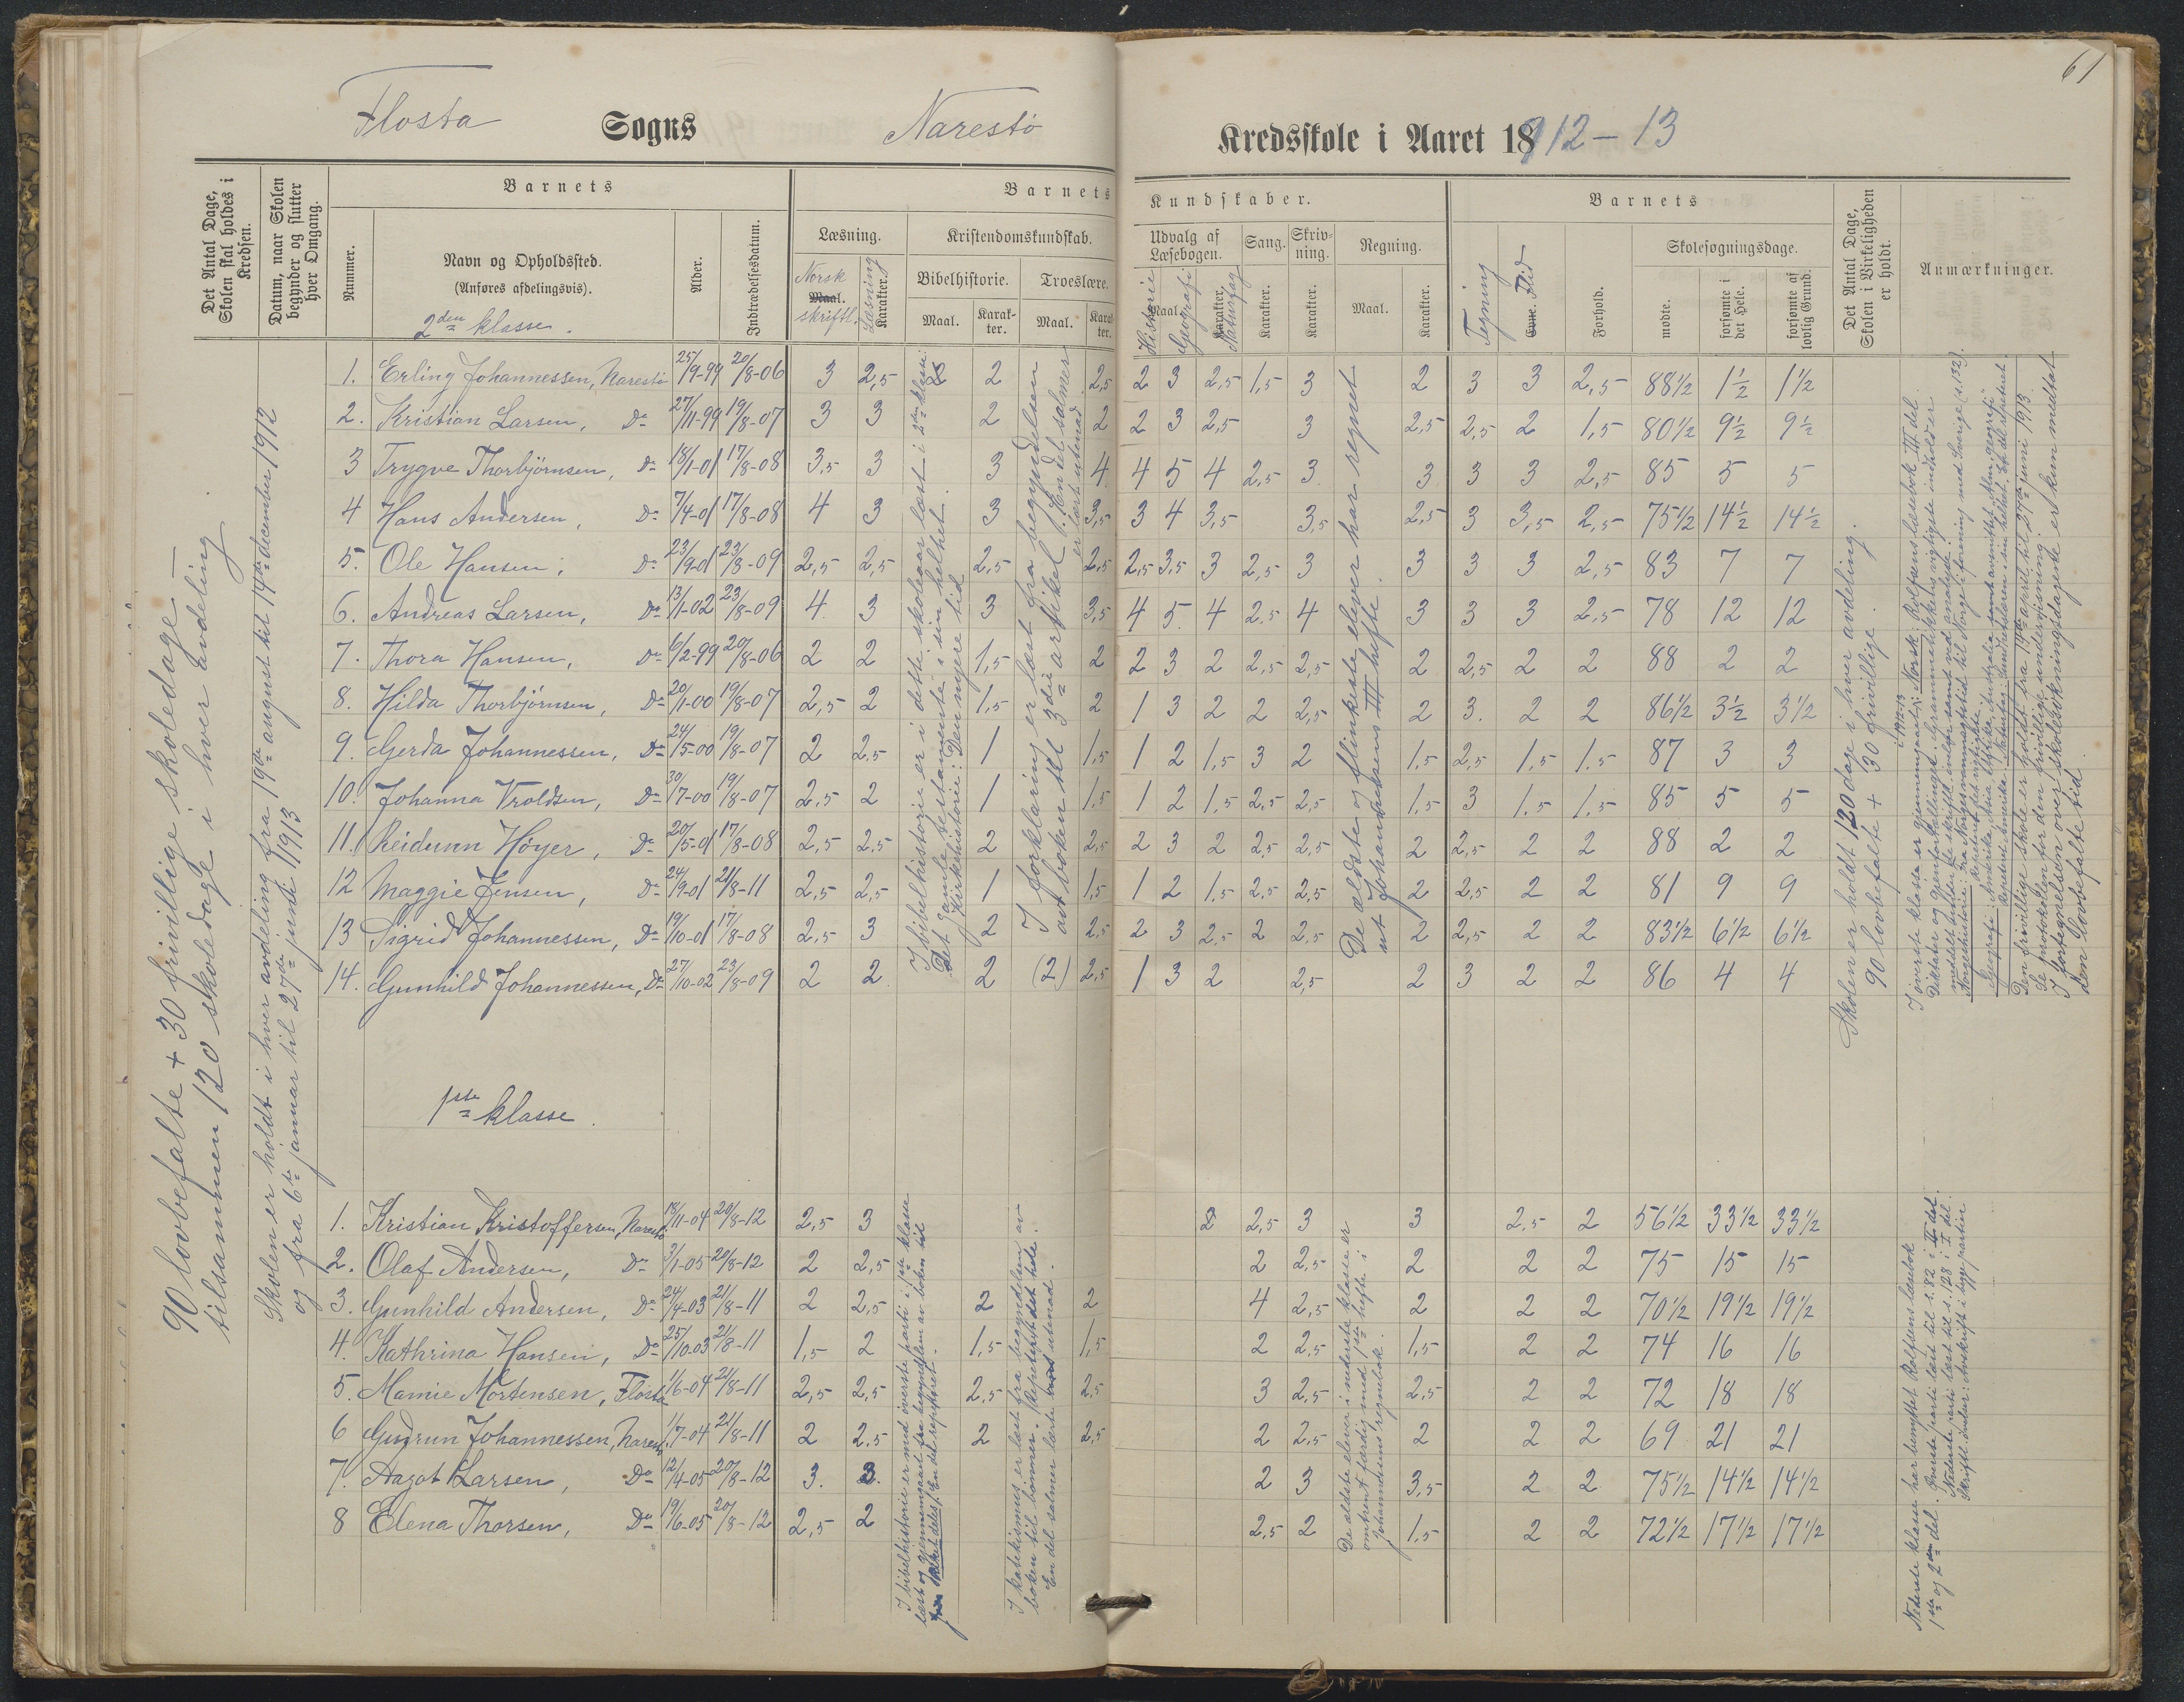 61
Flosta Sogns Narestø Kredsskole i Aaret 18912–13
Det Antal Dage, Skolen skal holdes i Kredsen.
Datum, naar Skolen begynder og slutter hver Omgang.
Barnets
Nummer.
Navn og Opholdssted.
(Anføres afdelingsvis).
Alder.
Indtrædelsesdatum.
Barnets Kundskaber.
Læsning.
Norsk
Maal.
skriftl.
Læsning
Karakter.
Kristendomskundskab.
Bibelhistorie.
Maal.
Karakter.
Troeslære.
Maal.
Karakter.
Udvalg af Læsebogen.
Historie
Maal.
Geografi
Karakter.
Naturfag
Sang.
Karakter.
Skrivning.
Karakter.
Regning.
Maal.
Karakter.
Barnets
Tegning
Evne. Flid
Forhold.
Skolesøgningsdage.
mødte.
forsømte i det Hele.
forsømte af lovlig Grund.
Det Antal Dage, Skolen i Virkeligheden er holdt.
Anmærkninger.
90 lovbefalte + 30 frivillige skoledage –
tilsammen 120 skoledage i hver avdeling.
Skolen er holdt i hver avdeling fra 19de august til 14de december 1912
og fra 6te januar til 27de juni 1913
2den klasse.
1. Erling Johannessen, Narestø 25/9-99 20/8-06 3 2,5 2 2,5 2 3 2,5 1,5 3 2 3 3 2,5 88½ 1½ 1½
2. Kristian Larsen, Do 27/11-99 19/8-07 3 3 2 2 2 3 2,5 3 2,5 2,5 2 1,5 80½ 9½ 9½
3 Trygve Thorbjørnsen, Do 18/1-01 17/8-08 3,5 3 3 4 4 5 4 2,5 3 3 3 3 2,5 85 5 5
4 Hans Andersen, Do 7/4-01 17/8-08 4 3 3 3,5 3 4 3,5 3,5 2,5 3 3,5 2,5 75½ 14½ 14½
5. Ole Hansen, Do 23/9-01 23/8-09 2,5 2,5 2,5 2,5 2,5 3,5 3 2,5 3 3 3 3 2,5 83 7 7
6. Andreas Larsen, Do 13/1-02 23/8-09 4 3 3 3,5 4 5 4 2,5 4 3 3 3 2,5 78 12 12
7. Thora Hansen, Do 6/2-99 20/8-06 2 2 1,5 2 2 3 2 2,5 2,5 2 2,5 2 2 88 2 2
8. Hilda Thorbjørnsen, Do 20/1-00 19/8-07 2,5 2 1,5 2 1 3 2 2 2,5 2 3. 2 2 86½ 3½ 3½
9. Gerda Johannessen, Do 24/5-00 19/8-07 2 2,5 1 1,5 1 2 1,5 3 2 1,5 2,5 1,5 1,5 87 3 3
10. Johanna Vroldsen, Do 30/7-00 19/8-07 2,5 2 1 1,5 1 2 1,5 2,5 2,5 1,5 3 1,5 1,5 85 5 5
11. Reidunn Høyer, Do 20/5-01 17/8-08 2,5 2,5 2 2,5 2 3 2 2,5 2,5 2 2,5 2 2 88 2 2
12 Maggie Jensen, Do 24/9-01 21/8-11 2,5 2,5 1 1,5 1 2 1,5 2,5 2,5 2 2,5 2 2 81 9 9
13 Sigrid Johannessen, Do 19/10-01 17/8-08 2,5 3 2 2,5 2 3 2,5 2 2,5 2 2,5 2 2 83½ 6½ 6½
14. Gunhild Johannessen, Do 27/10-02 23/8-09 2 2 2 (2) 2,5 1 3 2 2,5 2 3 2 2 86 4 4
I bibelhistorie er i dette skoleaar læst i 2den klasse:
Det gamle testamente i sin helhet.
Kirkehistorie: Den nyere tid
I forklaring er læst fra begyndelsen
av boken til 3die artikel. En del salmer
er lært utenad
De ældste og flinkeste elever har regnet
ut Johannesens III hefte.
Skolen er holdt 120 dage i hver avdeling.
90 lovbefalte + 30 frivillige.
I øverste klasse er gjennemgaaet i 1912-13: Norsk: Rolfsens læsebok III del.
Diktater og gjenfortællinger. Grammatikkens vigtigste indhold er
Den frivillige skole er holdt fra 19de april til 27de juni 1913.
Se protokollen for den frivillige undervisning.
I fortegnelsen over skolesøkningsdagene er kun medtat
den lovbefalte tid.
1ste klasse.
1. Kristian Kristoffersen, Narestø 18/11-04 20/8-12 2,5 3 2,5 3 3 2,5 2 56½ 33½ 33½
2. Olaf Andersen, Do 3/1-05 20/8-12 2 2,5 2 2,5 2 2 2 75 15 15
3. Gunhild Andersen, Do 24/4-03 21/8-11 2 2,5 2 2 4 2,5 2 2 2 70½ 19½ 19½
4. Kathrina Hansen, Do 25/10-03 21/8-11 1,5 2 1,5 1,5 2 2,5 1,5 2 2 74 16 16
5. Mamie Mortensen, Flosta 1/6-04 21/8-11 2,5 2,5 2,5 2,5 3 2,5 2,5 2 2 72 18 18
6 Gudrun Johannessen, Narestø 1/7-04 21/8-11 2 2,5 2 2,5 2 2,5 2 2 2 69 21 21
7. Aagot Larsen, Do 12/4-05 20/8-12 3. 3. 2 3 3,5 2 2 75½ 14½ 14½
8 Elena Thorsen, Do 19/6-05 20/8-12 2,5 2 2,5 2 1,5 2 2 72½ 17½ 17½
I bibelhistorie er med øverste parti i 1ste klasse
læst og gjennemgaat fra begyndelsen av boken til
En del repetert.
I katekismus er læst fra begyndelsen av
boken til bønnen. Repetert det hele.
En del salmer lærte utenad.
De ældste elever i nederste klasse er
omtrent færdig med 1ste hefte i
Johannesens regnebok.
Nederste klasse har benyttet Rolfsens læsebok
1ste og 2den del. Øverste parti læst til s. 82 i II del
Nederste parti læst til s. 128 i I del.